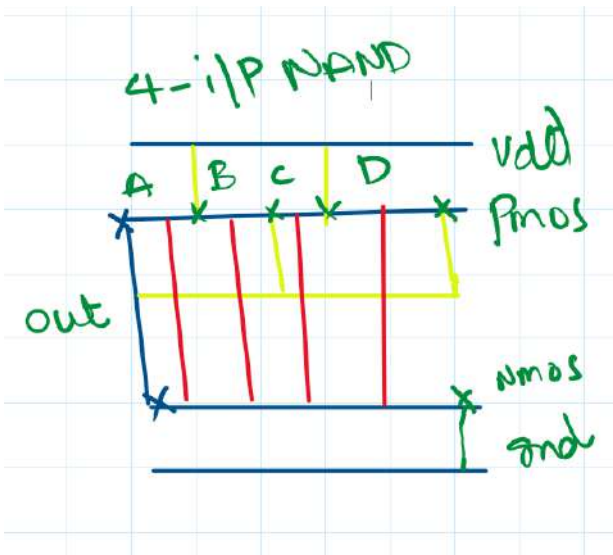 4-i/p NAND
Vdd
A B C D
Pmos
out
Nmos
gnd